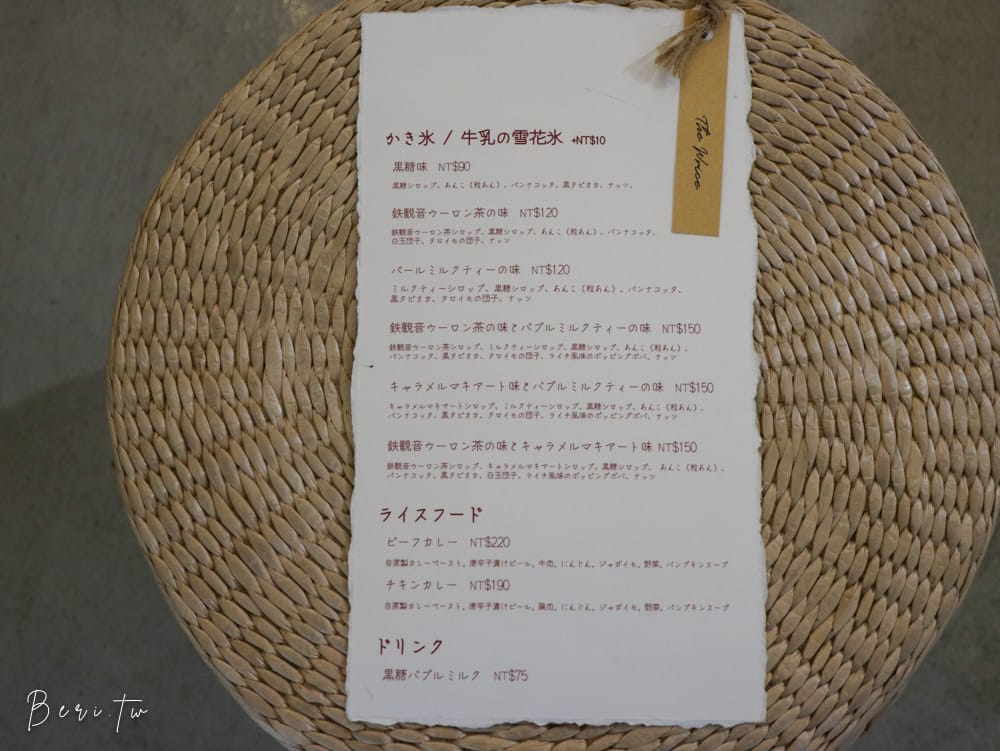 かき氷 / 牛乳の雪花氷 +NT$10
黒糖味 NT$90
黒糖シロップ、あんこ（粒あん）、パンナコッタ、黒タピオカ、ナッツ、
鉄観音ウーロン茶の味 NT$120
鉄観音ウーロン茶シロップ、黒糖シロップ、あんこ（粒あん）、パンナコッタ、
白玉団子、タロイモの団子、ナッツ
パールミルクティーの味 NT$120
ミルクティーシロップ、黒糖シロップ、あんこ（粒あん）、パンナコッタ、
黒タピオカ、タロイモの団子、ナッツ
鉄観音ウーロン茶の味とバブルミルクティーの味 NT$150
鉄観音ウーロン茶シロップ、ミルクティーシロップ、黒糖シロップ、あんこ（粒あん）、
パンナコッタ、黒タピオカ、タロイモの団子、ライチ風味のポッピングボバ、ナッツ
キャラメルマキアート味とバブルミルクティーの味 NT$150
キャラメルマキアートシロップ、ミルクティーシロップ、黒糖シロップ、あんこ（粒あん）、
パンナコッタ、黒タピオカ、タロイモの団子、ライチ風味のポッピングボバ、ナッツ
鉄観音ウーロン茶の味とキャラメルマキアート味 NT$150
鉄観音ウーロン茶シロップ、キャラメルマキアートシロップ、黒糖シロップ、 あんこ（粒あん）、
パンナコッタ、黒タピオカ、白玉団子、ライチ風味のポッピングボバ、ナッツ
ライスフード
ビーフカレー NT$220
自家製カレーペースト, 唐辛子漬けピール, 牛肉, にんじん, ジャガイモ, 野菜, パンプキンスープ
チキンカレー NT$190
自家製カレーペースト, 唐辛子漬けピール, 鶏肉, にんじん, ジャガイモ, 野菜, パンプキンスープ
ドリンク
黒糖バブルミルク NT$75
The
Beri.tw